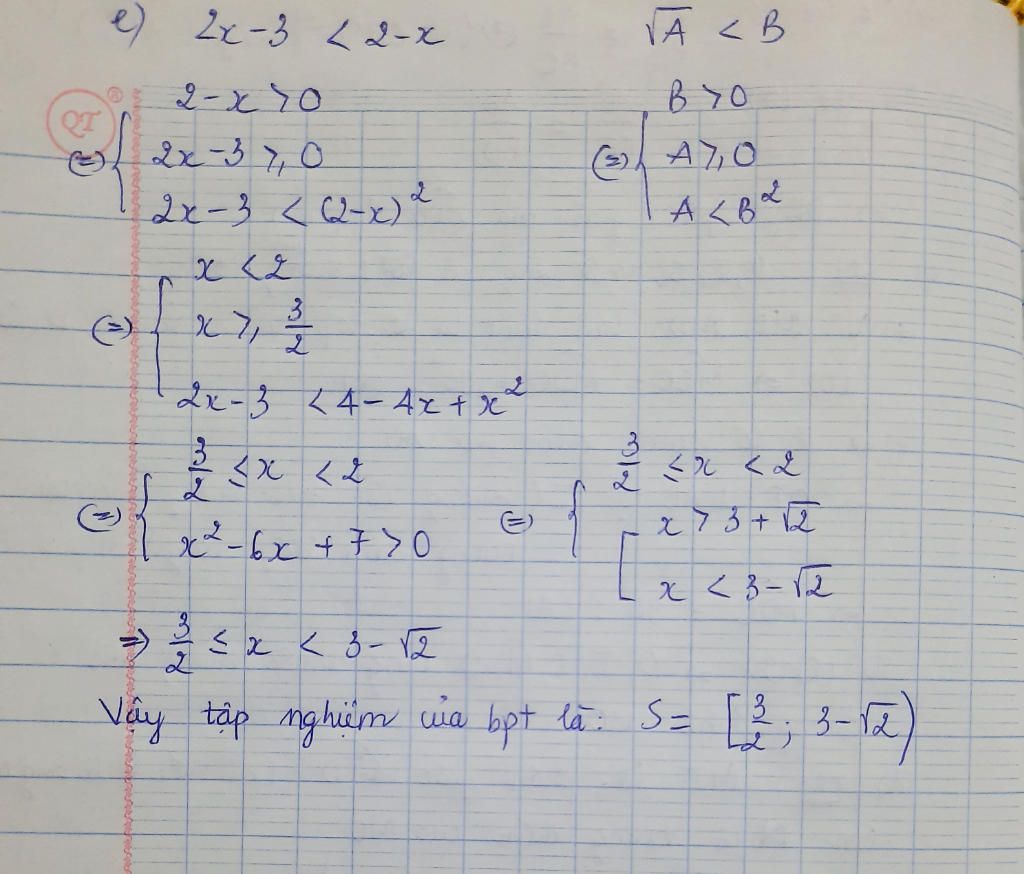 e) 2x-3 < 2-x √A < B
QT ®
2-x > 0 B > 0
(=) { 2x-3 ≥ 0 (=) { A ≥ 0
2x-3 < (2-x)² A < B²
x < 2
(=) { x ≥ 3/2
2x-3 < 4 - 4x + x²
3/2 ≤ x < 2 3/2 ≤ x < 2
(=) { x² - 6x + 7 > 0 (=) { [ x > 3 + √2
x < 3 - √2
=> 3/2 ≤ x < 3 - √2
Vậy tập nghiệm của bpt là: S = [3/2; 3-√2)